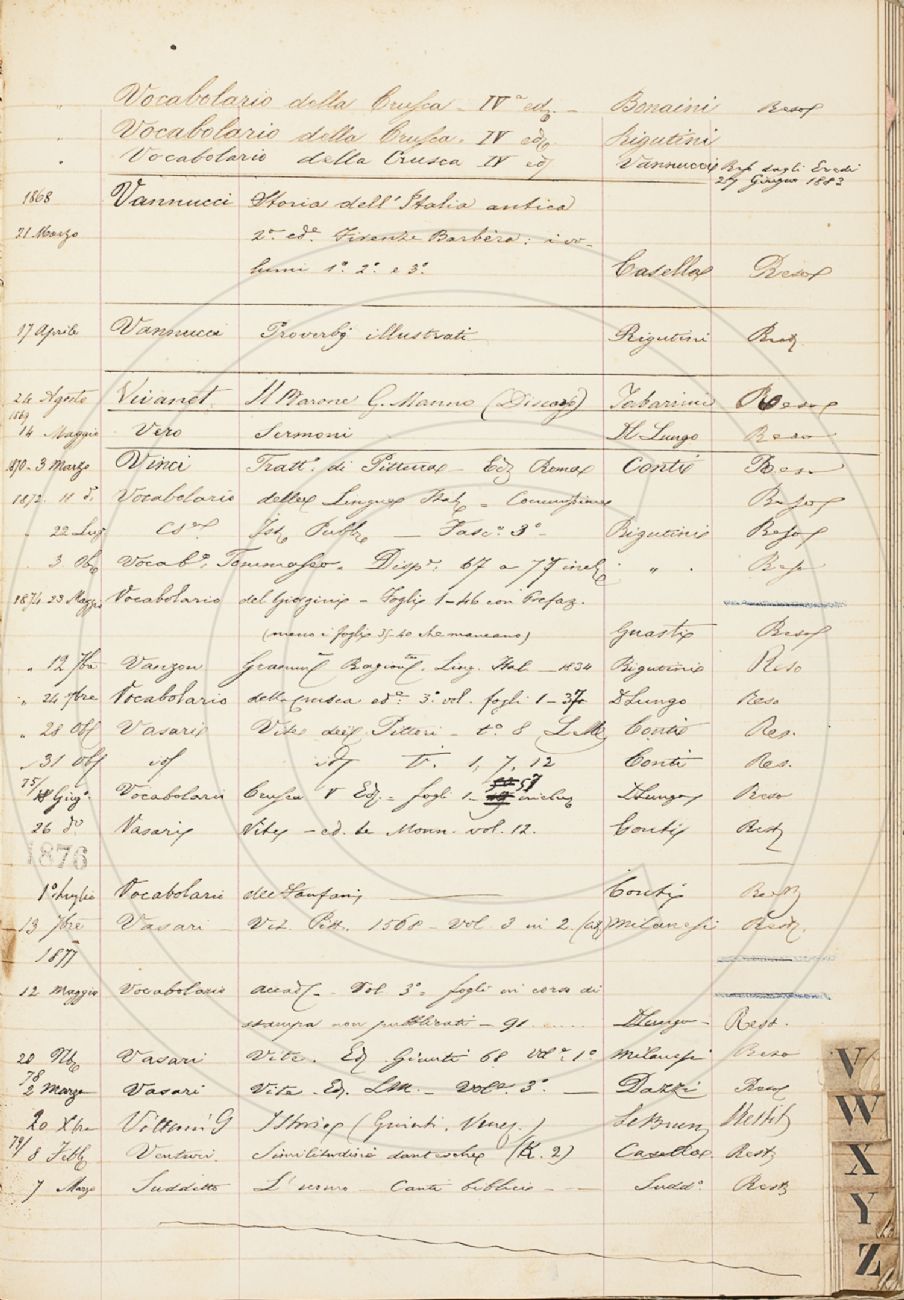 " Vocabolario della Crusca - IV.a ed. - Bonaini Reso
" Vocabolario della Crusca. IV ed. Rigutini
" Vocabolario della Crusca IV ed. Vannucci Res dagli Eredi
29 Giugno 1883
1868 Vannucci Storia dell'Italia antica
21 Marzo 2.a ed.e Firenze Barbèra: i vo-
lumi 1.° 2.° e 3.° Casella Reso
17 Aprile Vannucci Proverbj illustrati Rigutini Rest.
24 Agosto Vivanet Il Barone G. Manno (Discorso) Tabarrini Reso
1869
14 Maggio Vero Sermoni D.Lungo Reso
1870 - 3 Marzo Vinci Tratt.° di Pittura - Ed. Roma Conti Reso
1872. 11 d.° Vocabolario della Lingua Ital. - Commissione Reso
" 22 Lug. Ist. Pubb. — Fasc.° 3° Rigutini Reso
" 3 Vocab.° Tommaseo. Disp.e 67 a 77 incl. " Reso
1874 23 Maggio Vocabolario del Giorgini - Fogli 1-46 con Prefaz.
(meno i fogli 35-40 che mancano) Guasti Reso
" 12 7bre Vanzon Gramm. Ragion. Ling. Ital - 1834 Rigutini Reso
" 24 7bre Vocabolario della Crusca ed.e 3° vol. fogli 1-37 D Lungo Reso
" 28 Ob. Vasari Vite dei Pittori - t.° 8 L M. Conti Res.
" 31 Ob. id id t. 1, 7, 12 Conti Res.
75/ Giug.° Vocabolario Crusca V Ed. - fogli 1- 57 inclus D Lungo Reso
26 d.° Vasari Vite - ed. Le Monn. vol. 12. Conti Rest.
1876
1° Luglio Vocabolario del Fanfani — Conti Rest.
13 7bre Vasari Vit. Pitt. 1568 - vol. 3 in 2. Milanesi Rest.
1877
12 Maggio Vocabolario Accad. - Vol 3° - fogli in corso di
stampa non pubblicati - 91 D.Lungo - Rest.
20 Vasari Vite. Ed. Giunti 68 vol. 1° Milanesi Reso
78
2 Marzo Vasari Vite Ed. LM. - Vol. 3°. — Dazzi Reso
20 Xbre Vettori G Istorie (Giunti, Venez.) Le Brun
79/ 8 Febb. Venturi. Similitudini dantesche (K. 2) Casella Rest.
7 Marzo Suddetto L'uomo - Canti biblici - - - Sudd.° Rest.
V
W
X
Y
Z